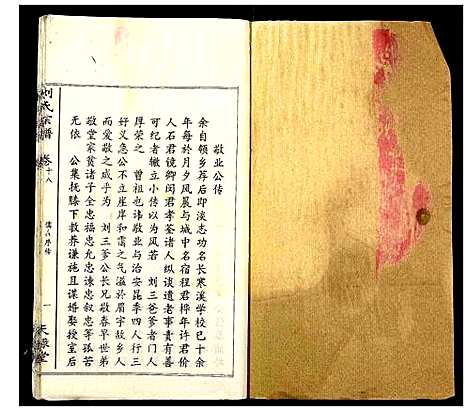 敬业公传
余自领乡荐后即淡志功名长寒溪学校已十余
年每於月夕风晨与城中名宿程君桦年许君价
人石君镜卿闵君孝荃诸人纵谈遗老事贵有善
可纪者辙立小传以为风若 刘三爹爹者门人
厚荣之 曾祖也讳敬业与治安昆季四人行三
好义急公不立崖岸和霭之气溢於眉宇故乡人
敬而爱之或乎为 刘三爹公长兄敬春早世弟
敬堂家贫诸子全忠福忠允忠谏忠叙忠等孤苦
无依 公集抚膝下教养谦施且谋婚娶授室后
刘氏宗谱
卷十八
序传
一
天禄堂